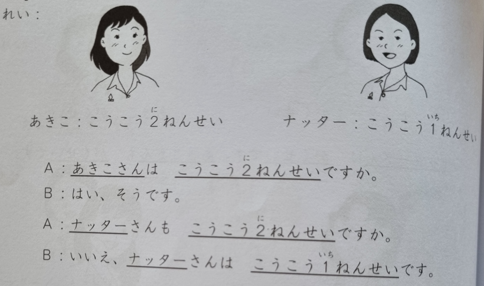 れい：
あきこ：こうこう2ねんせい
ナッター：こうこう1ねんせい
A：あきこさんは　こうこう2ねんせいですか。
B：はい、そうです。
A：ナッターさんも　こうこう2ねんせいですか。
B：いいえ、ナッターさんは　こうこう1ねんせいです。